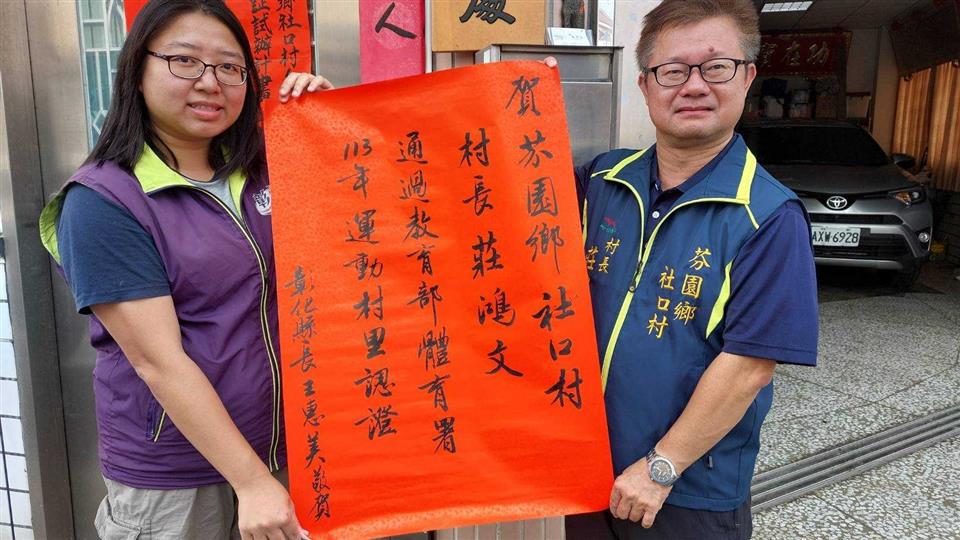 賀芬園鄉社口村
村長莊鴻文
通過教育部體育署
113年運動村里認證
彰化縣長王惠美敬賀
鄉社口村
証試辦計畫
人
處
芬園鄉
社口村
村長
莊
功在
AXW 6928